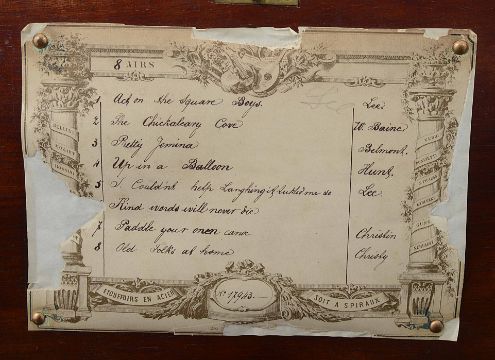 8 AIRS
1 Act on the Square Boys. Lee
2 The Chickaleary Cove W. Baine
3 Pretty Jemina Belmont
4 Up in a Balloon Hunt
5 I Couldnt help Laughing it tickled me so Lee
Kind words will never die
7 Paddle your own canoe Christin
8 Old folks at home Christy
ETOUFFOIRS EN ACIER
No 17943
SOIT A SPIRAUX